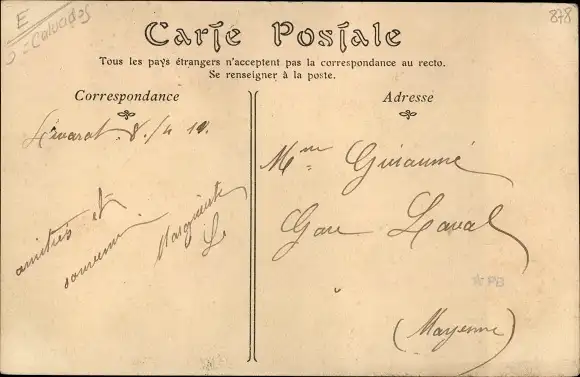 E
= Calvados
878
Carte Postale
Tous les pays étrangers n'acceptent pas la correspondance au recto.
Se renseigner à la poste.
Correspondance
Livarot 8/4 10.
amitiés et
souvenir.
Marguerite
L
Adresse
Mme Guiaumé
Gare Laval
(Mayenne)
PB